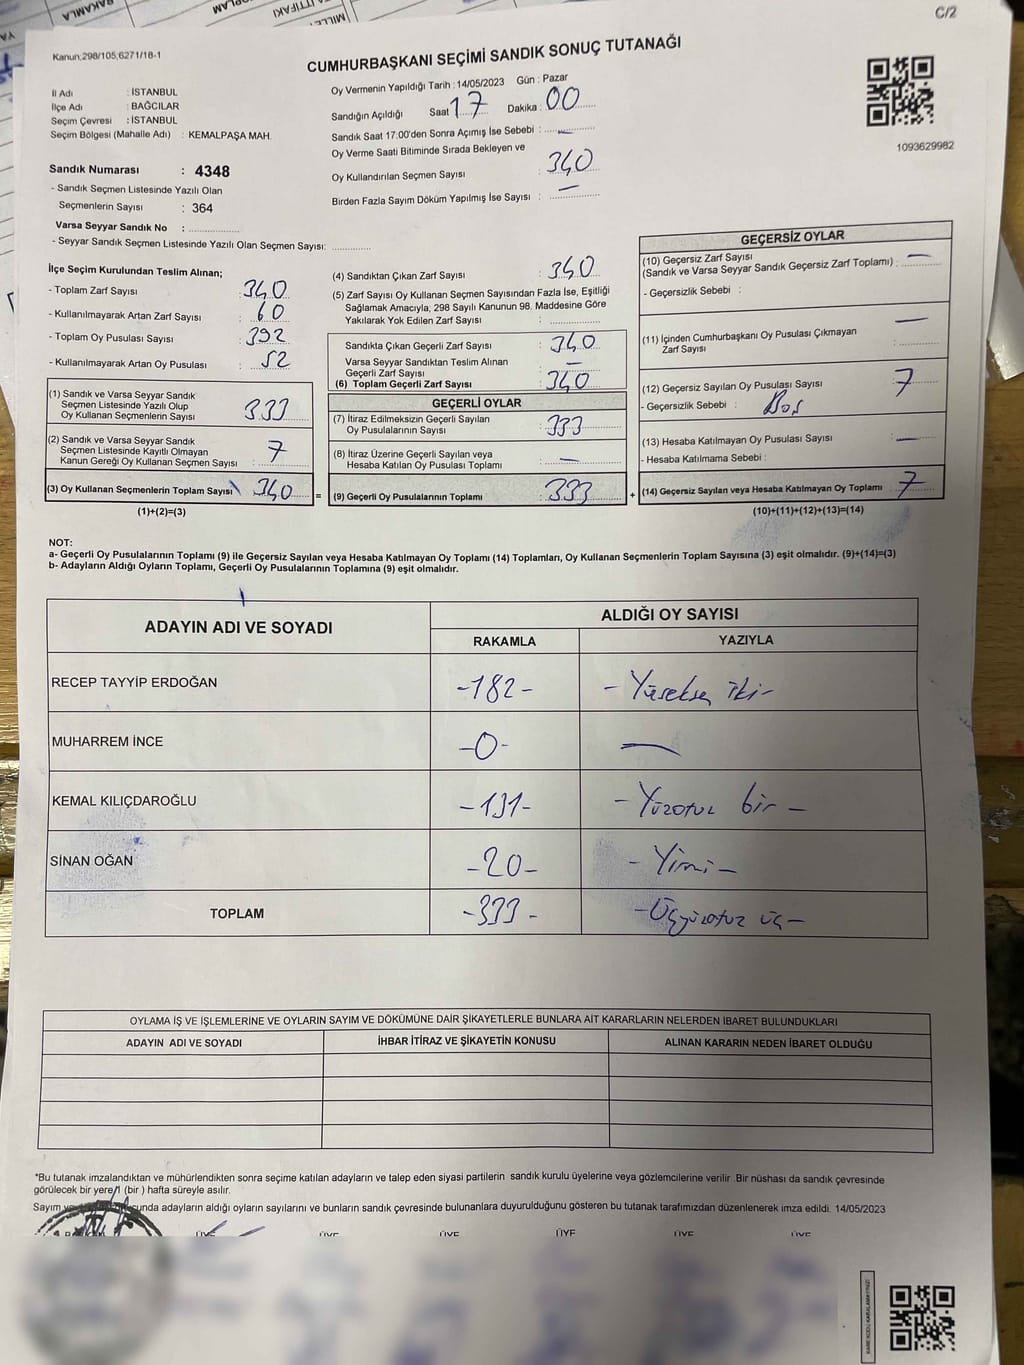 C/2
Kanun:298/105,6271/18-1
CUMHURBAŞKANI SEÇİMİ SANDIK SONUÇ TUTANAĞI
İl Adı : İSTANBUL
İlçe Adı : BAĞCILAR
Seçim Çevresi : İSTANBUL
Seçim Bölgesi (Mahalle Adı) : KEMALPAŞA MAH.
Sandık Numarası : 4348
- Sandık Seçmen Listesinde Yazılı Olan
Seçmenlerin Sayısı : 364
Varsa Seyyar Sandık No :
- Seyyar Sandık Seçmen Listesinde Yazılı Olan Seçmen Sayısı:
Oy Vermenin Yapıldığı Tarih : 14/05/2023 Gün : Pazar
Sandığın Açıldığı Saat 17 Dakika : 00
Sandık Saat 17:00'den Sonra Açımış İse Sebebi : —
Oy Verme Saati Bitiminde Sırada Bekleyen ve
Oy Kullandırılan Seçmen Sayısı : 340
Birden Fazla Sayım Döküm Yapılmış İse Sayısı : —
1093629982
İlçe Seçim Kurulundan Teslim Alınan;
- Toplam Zarf Sayısı : 340
- Kullanılmayarak Artan Zarf Sayısı : 60
- Toplam Oy Pusulası Sayısı : 392
- Kullanılmayarak Artan Oy Pusulası : 52
(1) Sandık ve Varsa Seyyar Sandık
Seçmen Listesinde Yazılı Olup
Oy Kullanan Seçmenlerin Sayısı : 333
(2) Sandık ve Varsa Seyyar Sandık
Seçmen Listesinde Kayıtlı Olmayan
Kanun Gereği Oy Kullanan Seçmen Sayısı : 7
(3) Oy Kullanan Seçmenlerin Toplam Sayısı 340
(1)+(2)=(3)
=
(4) Sandıktan Çıkan Zarf Sayısı : 340
(5) Zarf Sayısı Oy Kullanan Seçmen Sayısından Fazla İse, Eşitliği
Sağlamak Amacıyla; 298 Sayılı Kanunun 98. Maddesine Göre
Yakılarak Yok Edilen Zarf Sayısı :
Sandıkta Çıkan Geçerli Zarf Sayısı : 340
Varsa Seyyar Sandıktan Teslim Alınan
Geçerli Zarf Sayısı : —
(6) Toplam Geçerli Zarf Sayısı : 340
GEÇERLİ OYLAR
(7) İtiraz Edilmeksizin Geçerli Sayılan
Oy Pusulalarının Sayısı : 333
(8) İtiraz Üzerine Geçerli Sayılan veya
Hesaba Katılan Oy Pusulası Toplamı : —
(9) Geçerli Oy Pusulalarının Toplamı : 333
+
GEÇERSİZ OYLAR
(10) Geçersiz Zarf Sayısı
(Sandık ve Varsa Seyyar Sandık Geçersiz Zarf Toplamı) : —
- Geçersizlik Sebebi :
(11) İçinden Cumhurbaşkanı Oy Pusulası Çıkmayan
Zarf Sayısı : —
(12) Geçersiz Sayılan Oy Pusulası Sayısı : 7
- Geçersizlik Sebebi : Boş
(13) Hesaba Katılmayan Oy Pusulası Sayısı : —
- Hesaba Katılmama Sebebi :
(14) Geçersiz Sayılan veya Hesaba Katılmayan Oy Toplamı : 7
(10)+(11)+(12)+(13)=(14)
NOT:
a- Geçerli Oy Pusulalarının Toplamı (9) ile Geçersiz Sayılan veya Hesaba Katılmayan Oy Toplamı (14) Toplamları, Oy Kullanan Seçmenlerin Toplam Sayısına (3) eşit olmalıdır. (9)+(14)=(3)
b- Adayların Aldığı Oyların Toplamı, Geçerli Oy Pusulalarının Toplamına (9) eşit olmalıdır.
ADAYIN ADI VE SOYADI ALDIĞI OY SAYISI
RAKAMLA YAZIYLA
RECEP TAYYİP ERDOĞAN -182- - Yüzseksen iki-
MUHARREM İNCE -0- —
KEMAL KILIÇDAROĞLU -131- - Yüzotuz bir -
SİNAN OĞAN -20- - Yirmi -
TOPLAM -333- - Üçyüzotuz üç -
OYLAMA İŞ VE İŞLEMLERİNE VE OYLARIN SAYIM VE DÖKÜMÜNE DAİR ŞİKAYETLERLE BUNLARA AİT KARARLARIN NELERDEN İBARET BULUNDUKLARI
ADAYIN ADI VE SOYADI İHBAR İTİRAZ VE ŞİKAYETİN KONUSU ALINAN KARARIN NEDEN İBARET OLDUĞU
*Bu tutanak imzalandıktan ve mühürlendikten sonra seçime katılan adayların ve talep eden siyasi partilerin sandık kurulu üyelerine veya gözlemcilerine verilir. Bir nüshası da sandık çevresinde
görülecek bir yere 1 (bir ) hafta süreyle asılır.
Sayım unda adayların aldığı oyların sayılarını ve bunların sandık çevresinde bulunanlara duyurulduğunu gösteren bu tutanak tarafımızdan düzenlenerek imza edildi. 14/05/2023
ÜYE ÜYE ÜYE ÜYE ÜYE ÜYE